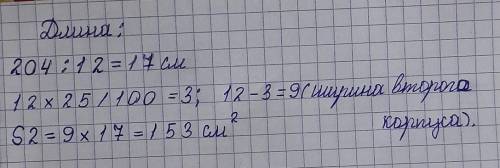 Длина:
204 : 12 = 17 см
12 × 25 / 100 = 3; 12 - 3 = 9 (ширина второго
корпуса).
S2 = 9 × 17 = 153 см²